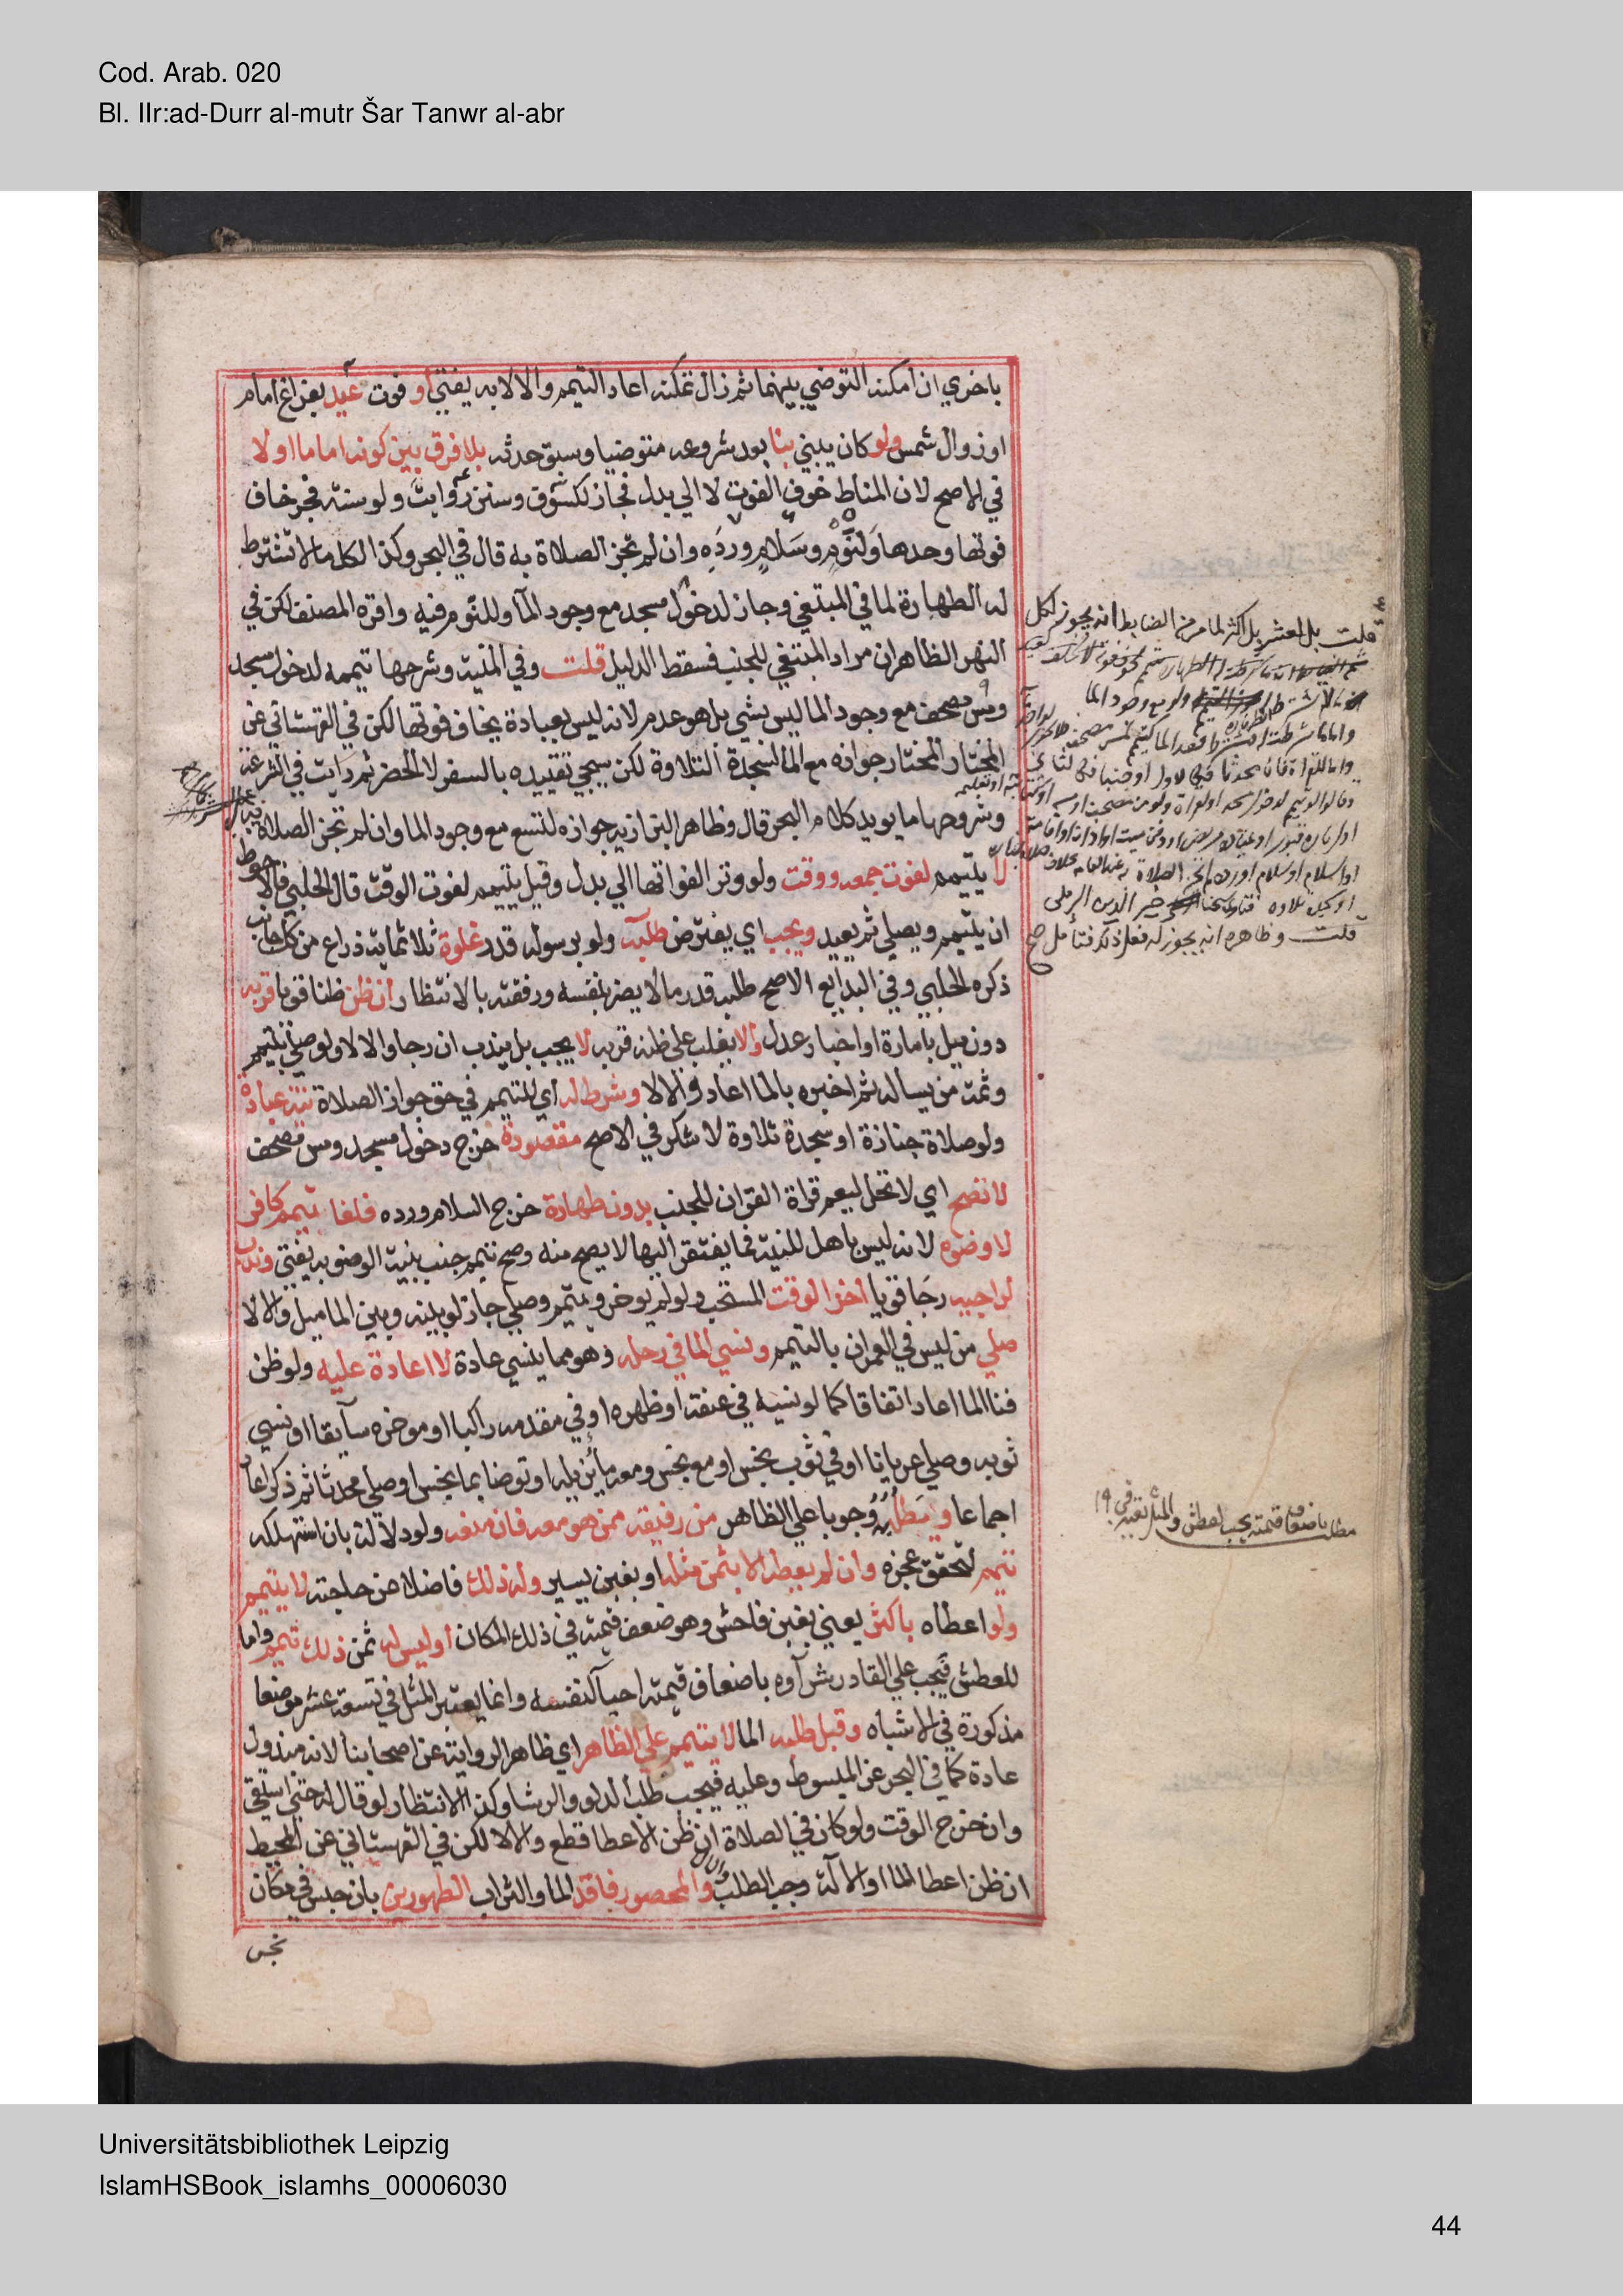 Cod. Arab. 020
Bl. IIr:ad-Durr al-mutr Šar Tanwr al-abr
باخري ان امكنه التوضي بينهما ثم زال تمكنه اعاد التيمم والا لا به يفتي او فوت عيد بفراغ امام
اوزوال شمس ولو كان يبني بنا بعد شروعه متوضيا وسبق حدثه بلا فرق بين كونه اماما اولا
في الاصح لان المناط خوف الفوت لا الي بدل فجاز لكسوق وسنن رواتب ولو سنة فجر خاف
فوتها وحدها ولنوم وسلام ورده وان لم تجز الصلاة به قال في البحر وكذا لكل ما لا تشترط
له الطهارة لما في المبتغي وجاز لدخول مسجد مع وجود المآ وللنوم فيه واقره المصنف لكن في
النهر الظاهر ان مراد المبتغي للجنب فسقط الدليل قلت وفي المنية وشرحها تيممه لدخول مسجد
ومس مصحف مع وجود الما ليس بشي بل هو عدم لانه ليس بعبادة يخاف فوتها لكن في القهستاني عن
المختار المختار جوازه مع الما لسجدة التلاوة لكن سيجي تقييده بالسفر لا الحضر ثم رايت في الشرعة
وشروحها ما يويد كلام البحر قال وظاهر البزازية جوازه لتسع مع وجود الما وان لم تجز الصلاة به
لا يتيمم لفوت جمعه ووقت ولو وتر الفواتها الي بدل وقيل يتيمم لفوت الوقت قال الحلبي فالاحوط
ان يتيمم ويصلي ثم يعيد ويجب اي يفترض طلبه ولو برسوله قدر غلوة ثلاثماية ذراع من كل جانب
ذكره الحلبي وفي البدايع الاصح طلبه قدر ما لا يضر بنفسه ورفقته بالانتظار ان ظن ظنا قويا قربه
دون ميل بامارة او اخبار عدل والا يغلب علي ظنه قربه لا يجب بل يندب ان رجا والا لا ولو صلي بتيمم
وثمت من يساله ثم اخبره بالما اعاد والا لا وشرط له اي للتيمم في حق جواز الصلاة نية عبادة
ولو صلاة جنازة او سجدة تلاوة لا شكر في الاصح مقصودة خرج دخول مسجد ومس مصحف
لا تصح اي لا تحل ليعم قراة القران للجنب بدون طهارة خرج السلام ورده فلغا تيمم كافر
لا وضوه لانه ليس باهل للنية فما يفتقر اليها لا يصح منه وصح تيمم جنب بنية الوضو به يفتي وندب
لراجيه رجا قويا اخر الوقت المستحب ولو لم يوخر وتيمم وصلي جاز لو بينه وبين الما ميل والا لا
صلي من ليس في العمران بالتيمم ونسي الما في رحله وهو مما ينسي عادة لا اعادة عليه ولو ظن
فنا الما اعاد اتفاقا كما لو نسيه في عنقه او ظهره او في مقدمه راكبا او موخره سآيقا او نسي
ثوبه وصلي عريانا او في ثوب نجس او مع نجس ومعه ما يزيله او توضا بما نجس او صلي محدثا ثم ذكر اعاد
اجماعا ويطلبه وجوبا علي الظاهر من رفيقه ممن هو معه فان منعه ولو دلالة بان استهلكه
تيمم لتحقق عجزه وان لم يعطه الا بثمن مثله او بغبن يسير وله ذلك فاضلا عن حاجته لا يتيمم
ولو اعطاه باكثر يعني بغبن فاحش وهو ضعف قيمته في ذلك المكان او ليس له ثمن ذلك تيمم واما
للعطش فيجب علي القادر شرآوه باضعاف قيمته احيآ لنفسه وانما يعتبر المثل في تسعة عشر موضعا
مذكورة في الاشباه وقبل طلبه الما لا يتيمم علي الظاهر اي ظاهر الرواية عن اصحابنا لانه مبذول
عادة كما في البحر عن المبسوط وعليه فيجب طلب الدلو والرشا وكذا الانتظار لو قال له حتي استقي
وان خرج الوقت ولو كان في الصلاة ان ظن الاعطا قطع والا لا لكن في القهستاني عن المحيط
ان ظن اعطا الما او الآلة وجب الطلب والمحصور فاقد الما والتراب الطهورين بان حبس في مكان
نجس
قلت بل لعشر بل اكثر لما مر من الضابط انه يجوز لكل
قلت وظاهره انه يجوز له فعل ذلك فتامل صح
مطلب باضعاف قيمته يجب لعطش والمثل يعتبر في ١٩
Universitätsbibliothek Leipzig
IslamHSBook_islamhs_00006030
44